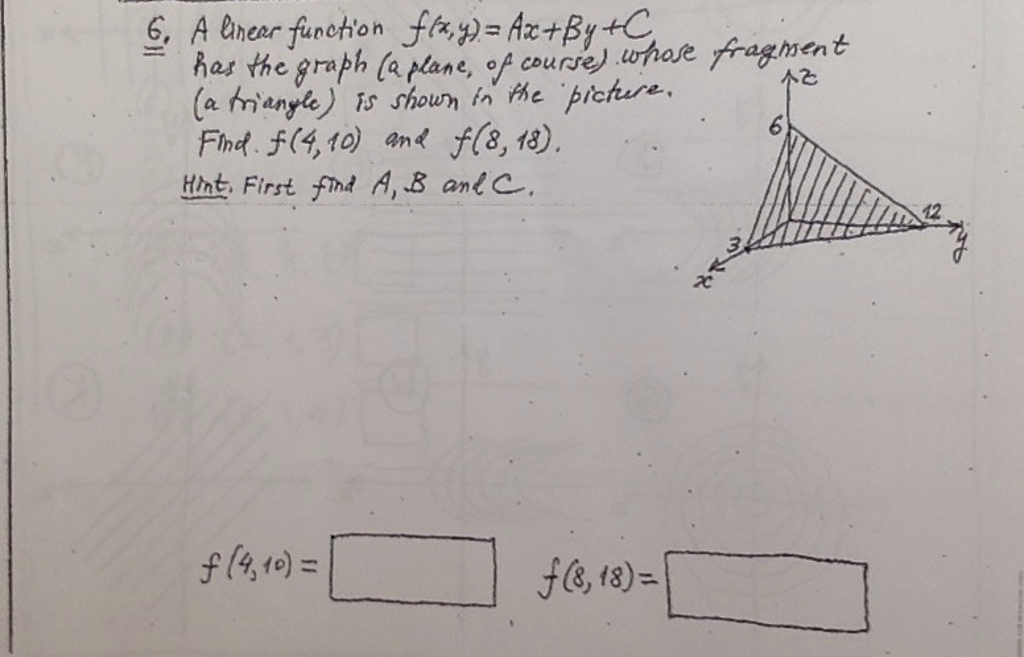 6. A linear function f(x,y) = Ax+By+C
has the graph (a plane, of course) whose fragment
(a triangle) is shown in the picture.
Find f(4,10) and f(8,18).
Hint. First find A, B and C.
z
6
12
3
y
x
f(4,10) =
f(8,18) =